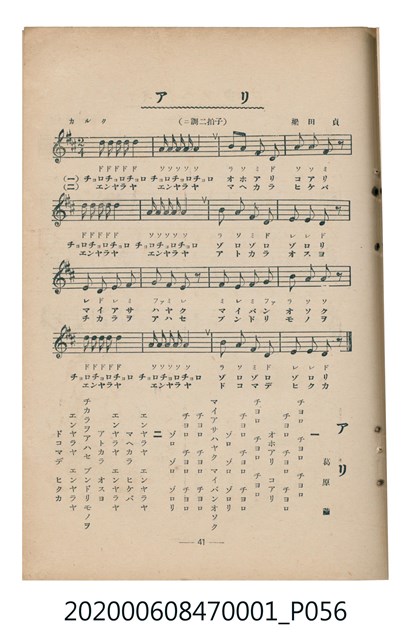 アリ
カルク
(ニ調二拍子)
梁田貞
ドドドド ソソソソ ラソミド ソソミ
(一) チョロチョロチョロ チョロチョロチョロ オホアリ コアリ
(二) エンヤラヤ エンヤラヤ マヘカラ ヒケバ
ドドドド ソソソソ ラソミド レレド
チョロチョロチョロ チョロチョロチョロ ゾロゾロ ゾロリ
エンヤラヤ エンヤラヤ アトカラ オスヨ
レドレミ ファミレ ミレミファ ラソソ
マイアサ ハヤク マイバン オソク
チカラヲ アハセ ブンドリ モノヲ
ドドドド ソソソソ ラソミド レレド
チョロチョロチョロ チョロチョロチョロ ゾロゾロ ゾロリ
エンヤラヤ エンヤラヤ ドコマデ ヒクカ
アリ
葛原
一
チョロ チョロ チョロ
チョロ チョロ チョロ
オホアリ コアリ
チョロ チョロ チョロ
チョロ チョロ チョロ
ゾロ ゾロ ゾロリ
マイアサハヤク マイバンオソク
チョロ チョロ チョロ
チョロ チョロ チョロ
ゾロ ゾロ ゾロリ
二
エンヤラヤ エンヤラヤ
マヘカラ ヒケバ
エンヤラヤ エンヤラヤ
アトカラ オスヨ
チカラヲアハセ ブンドリモノヲ
エンヤラヤ エンヤラヤ
ドコマデ ヒクカ
41
202000608470001_P056